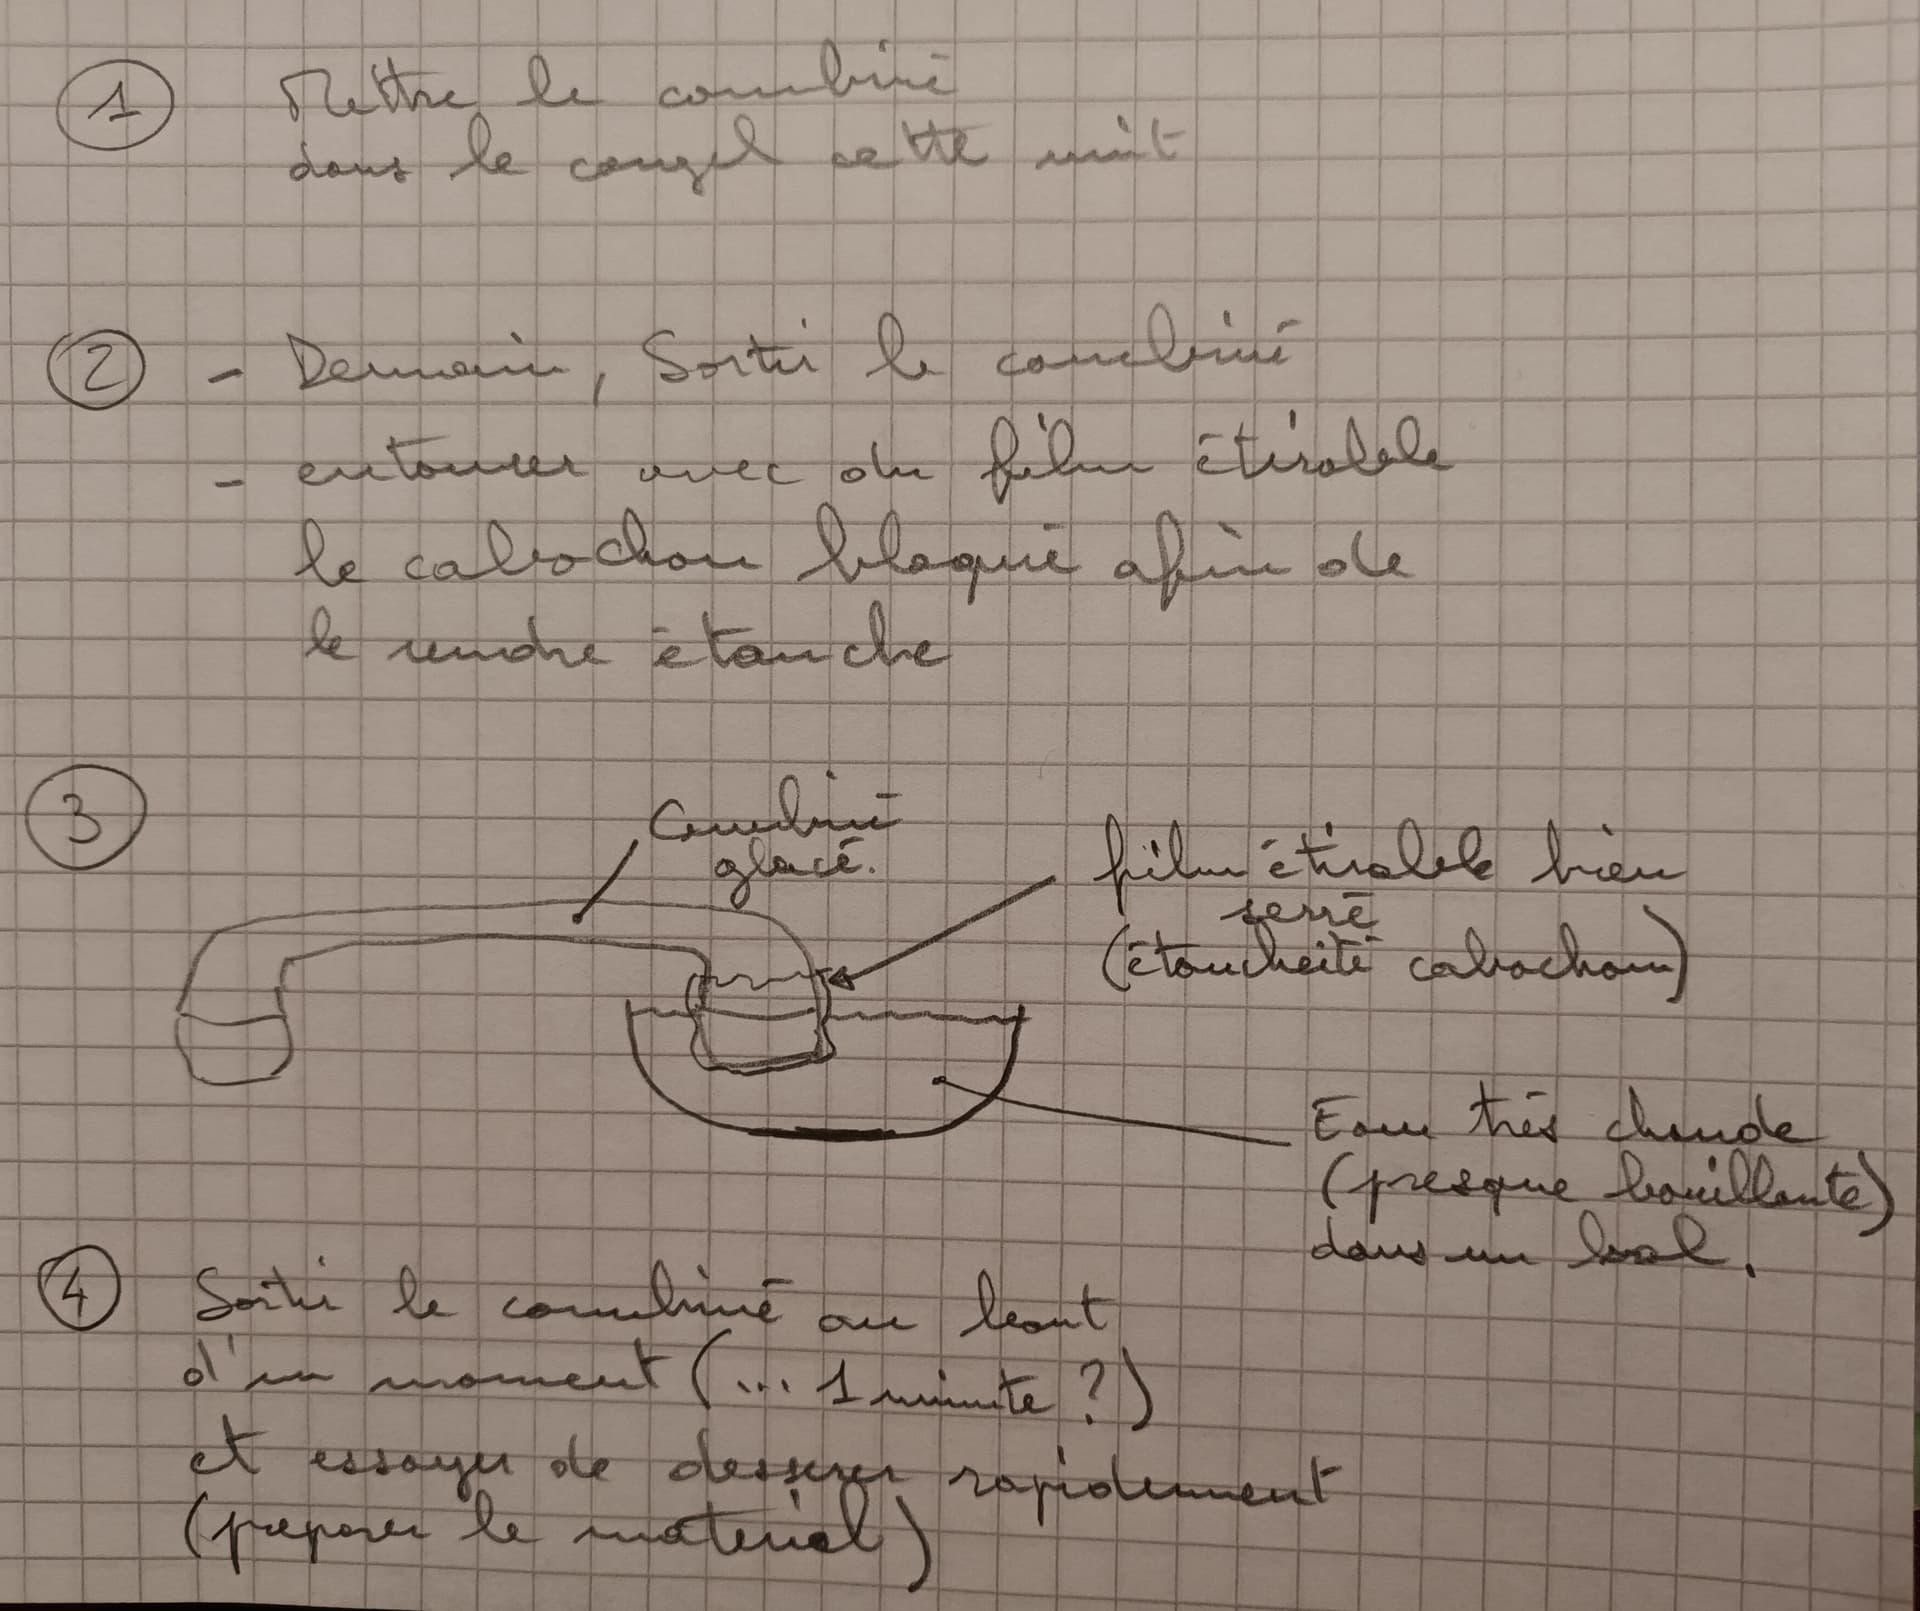 1 Mettre le combiné
dans le congel cette nuit
2 - Demain, Sortir le combiné
- entourer avec du film étirable
le cabochon bloqué afin de
le rendre étanche
3
Combiné
glacé.
film étirable bien
serré
(étanchéité cabochon)
Eau très chaude
(presque bouillante)
dans un bol.
4 Sortir le combiné au bout
d'un moment (... 1 minute ?)
et essayer de desserer rapidement
(préparer le matériel)